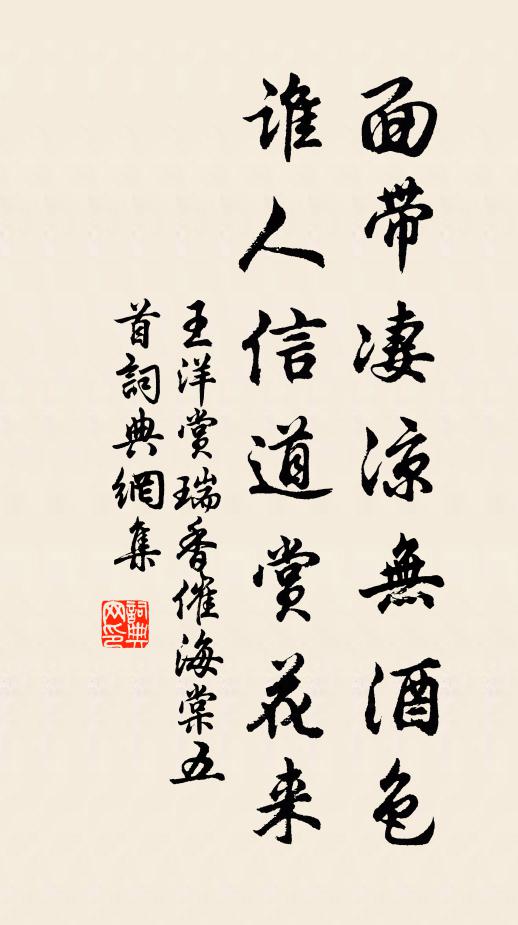 面带凄凉無酒色
谁人信道赏花来
王洋赏瑞香催海棠五
首詞典網集
詞典网印